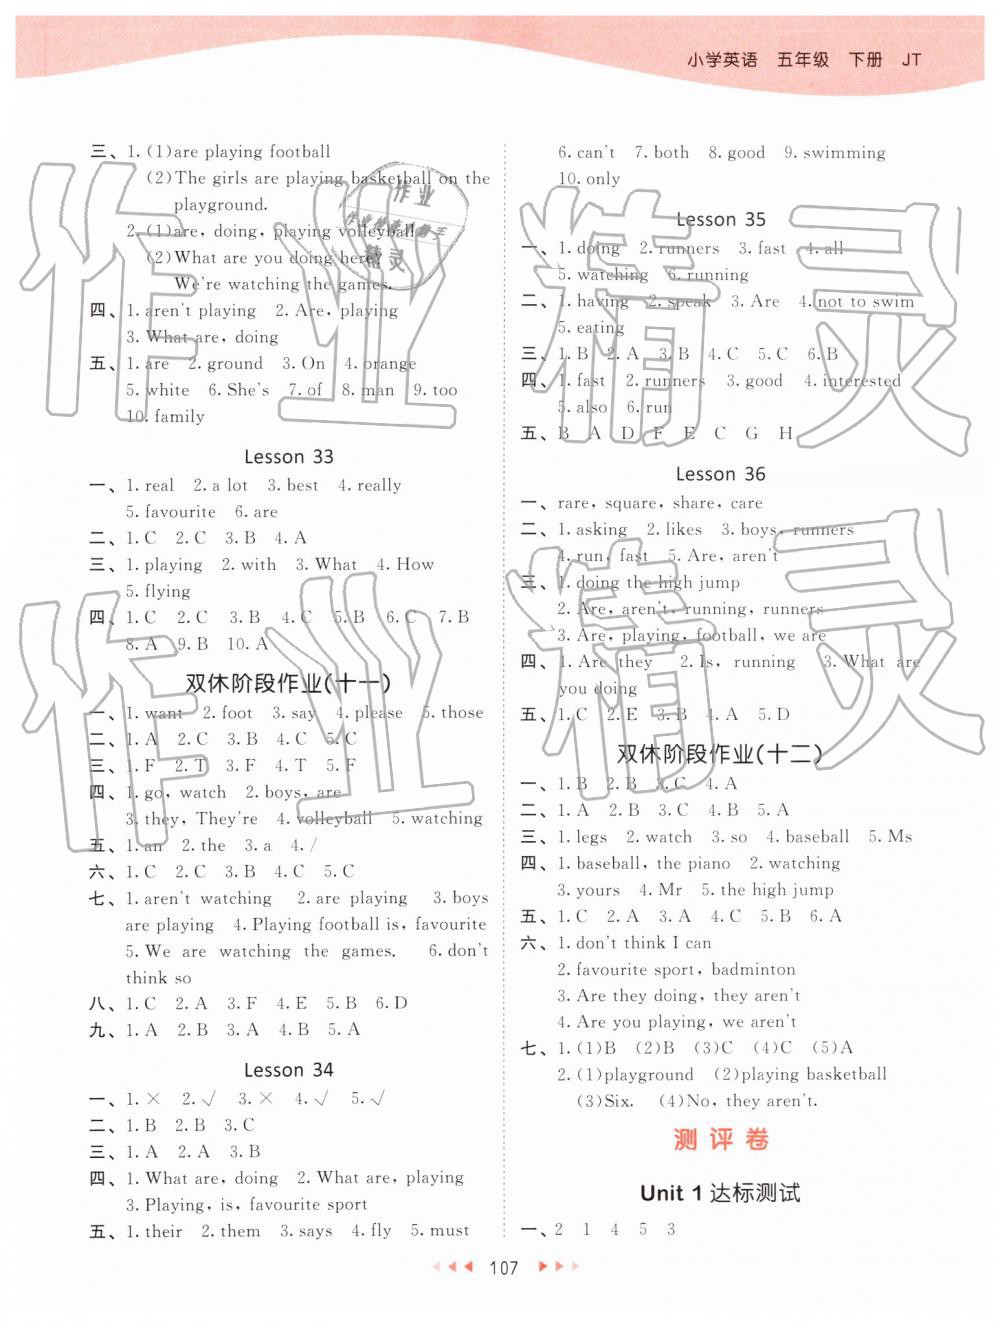 小学英语 五年级 下册 JT
三、1. (1)are playing football
(2)The girls are playing basketball on the
playground.
2. (1)are, doing, playing volleyball
(2)What are you doing here?
We're watching the games.
四、1. aren't playing 2. Are, playing
3. What are, doing
五、1. are 2. ground 3. On 4. orange
5. white 6. She's 7. of 8. man 9. too
10. family
Lesson 33
一、1. real 2. a lot 3. best 4. really
5. favourite 6. are
二、1. C 2. C 3. B 4. A
三、1. playing 2. with 3. What 4. How
5. flying
四、1. C 2. C 3. B 4. C 5. B 6. C 7. B
8. A 9. B 10. A
双休阶段作业(十一)
一、1. want 2. foot 3. say 4. please 5. those
二、1. A 2. C 3. B 4. C 5. C
三、1. F 2. T 3. F 4. T 5. F
四、1. go, watch 2. boys, are
3. they, They're 4. volleyball 5. watching
五、1. an 2. the 3. a 4. /
六、1. C 2. C 3. B 4. C 5. C
七、1. aren't watching 2. are playing 3. boys
are playing 4. Playing football is, favourite
5. We are watching the games. 6. don't
think so
八、1. C 2. A 3. F 4. E 5. B 6. D
九、1. A 2. B 3. A 4. B 5. A
Lesson 34
一、1. × 2. √ 3. × 4. √ 5. √
二、1. B 2. B 3. C
三、1. A 2. A 3. B
四、1. What are, doing 2. What are, playing
3. Playing, is, favourite sport
五、1. their 2. them 3. says 4. fly 5. must
6. can't 7. both 8. good 9. swimming
10. only
Lesson 35
一、1. doing 2. runners 3. fast 4. all
5. watching 6. running
二、1. having 2. speak 3. Are 4. not to swim
5. eating
三、1. B 2. A 3. B 4. C 5. C 6. B
四、1. fast 2. runners 3. good 4. interested
5. also 6. run
五、B A D F E C G H
Lesson 36
一、rare, square, share, care
二、1. asking 2. likes 3. boys, runners
4. run, fast 5. Are, aren't
三、1. doing the high jump
2. Are, aren't, running, runners
3. Are, playing, football, we are
四、1. Are they 2. Is, running 3. What are
you doing
五、1. C 2. E 3. B 4. A 5. D
双休阶段作业(十二)
一、1. B 2. B 3. C 4. A
二、1. A 2. B 3. C 4. B 5. A
三、1. legs 2. watch 3. so 4. baseball 5. Ms
四、1. baseball, the piano 2. watching
3. yours 4. Mr 5. the high jump
五、1. C 2. A 3. A 4. C 5. B 6. A
六、1. don't think I can
2. favourite sport, badminton
3. Are they doing, they aren't
4. Are you playing, we aren't
七、1. (1)B (2)B (3)C (4)C (5)A
2. (1)playground (2)playing basketball
(3)Six. (4)No, they aren't.
测评卷
Unit 1 达标测试
一、2 1 4 5 3
107
作业精灵
作业精灵